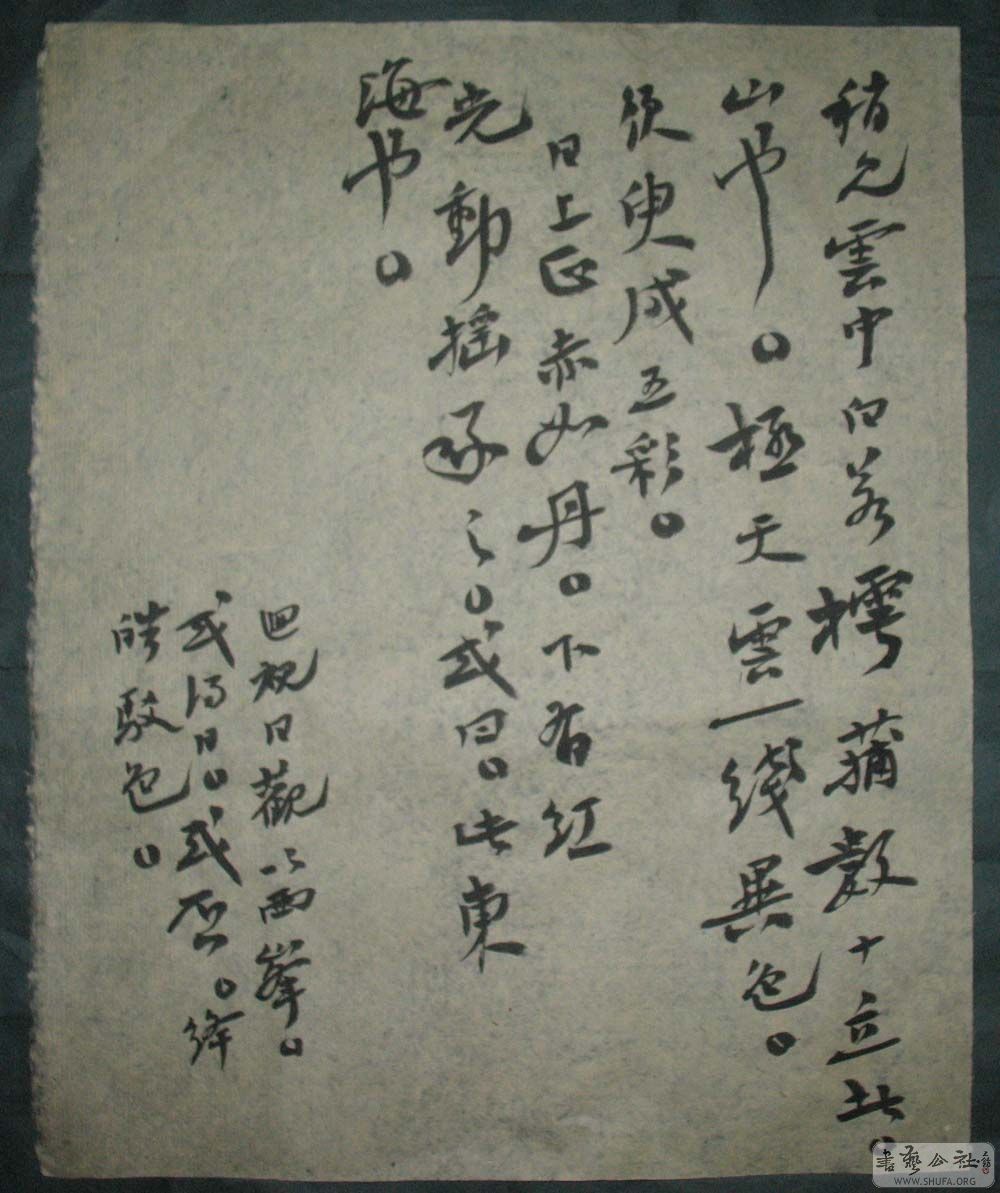 稍見雲中白若樗蒲數十立者。
山也。極天雲一綫異色。
須臾成五彩。
日上正赤如丹。下有紅
光動搖承之。或曰。此東
海也。
迴視日觀以西峯。
或得日。或否。絳
皓駁色。
書藝公社
WWW.SHUFA.ORG